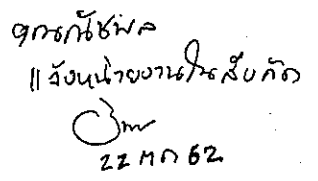 คุณณัชพล
แจ้งหน่วยงานในสังกัด
22 ตค 62